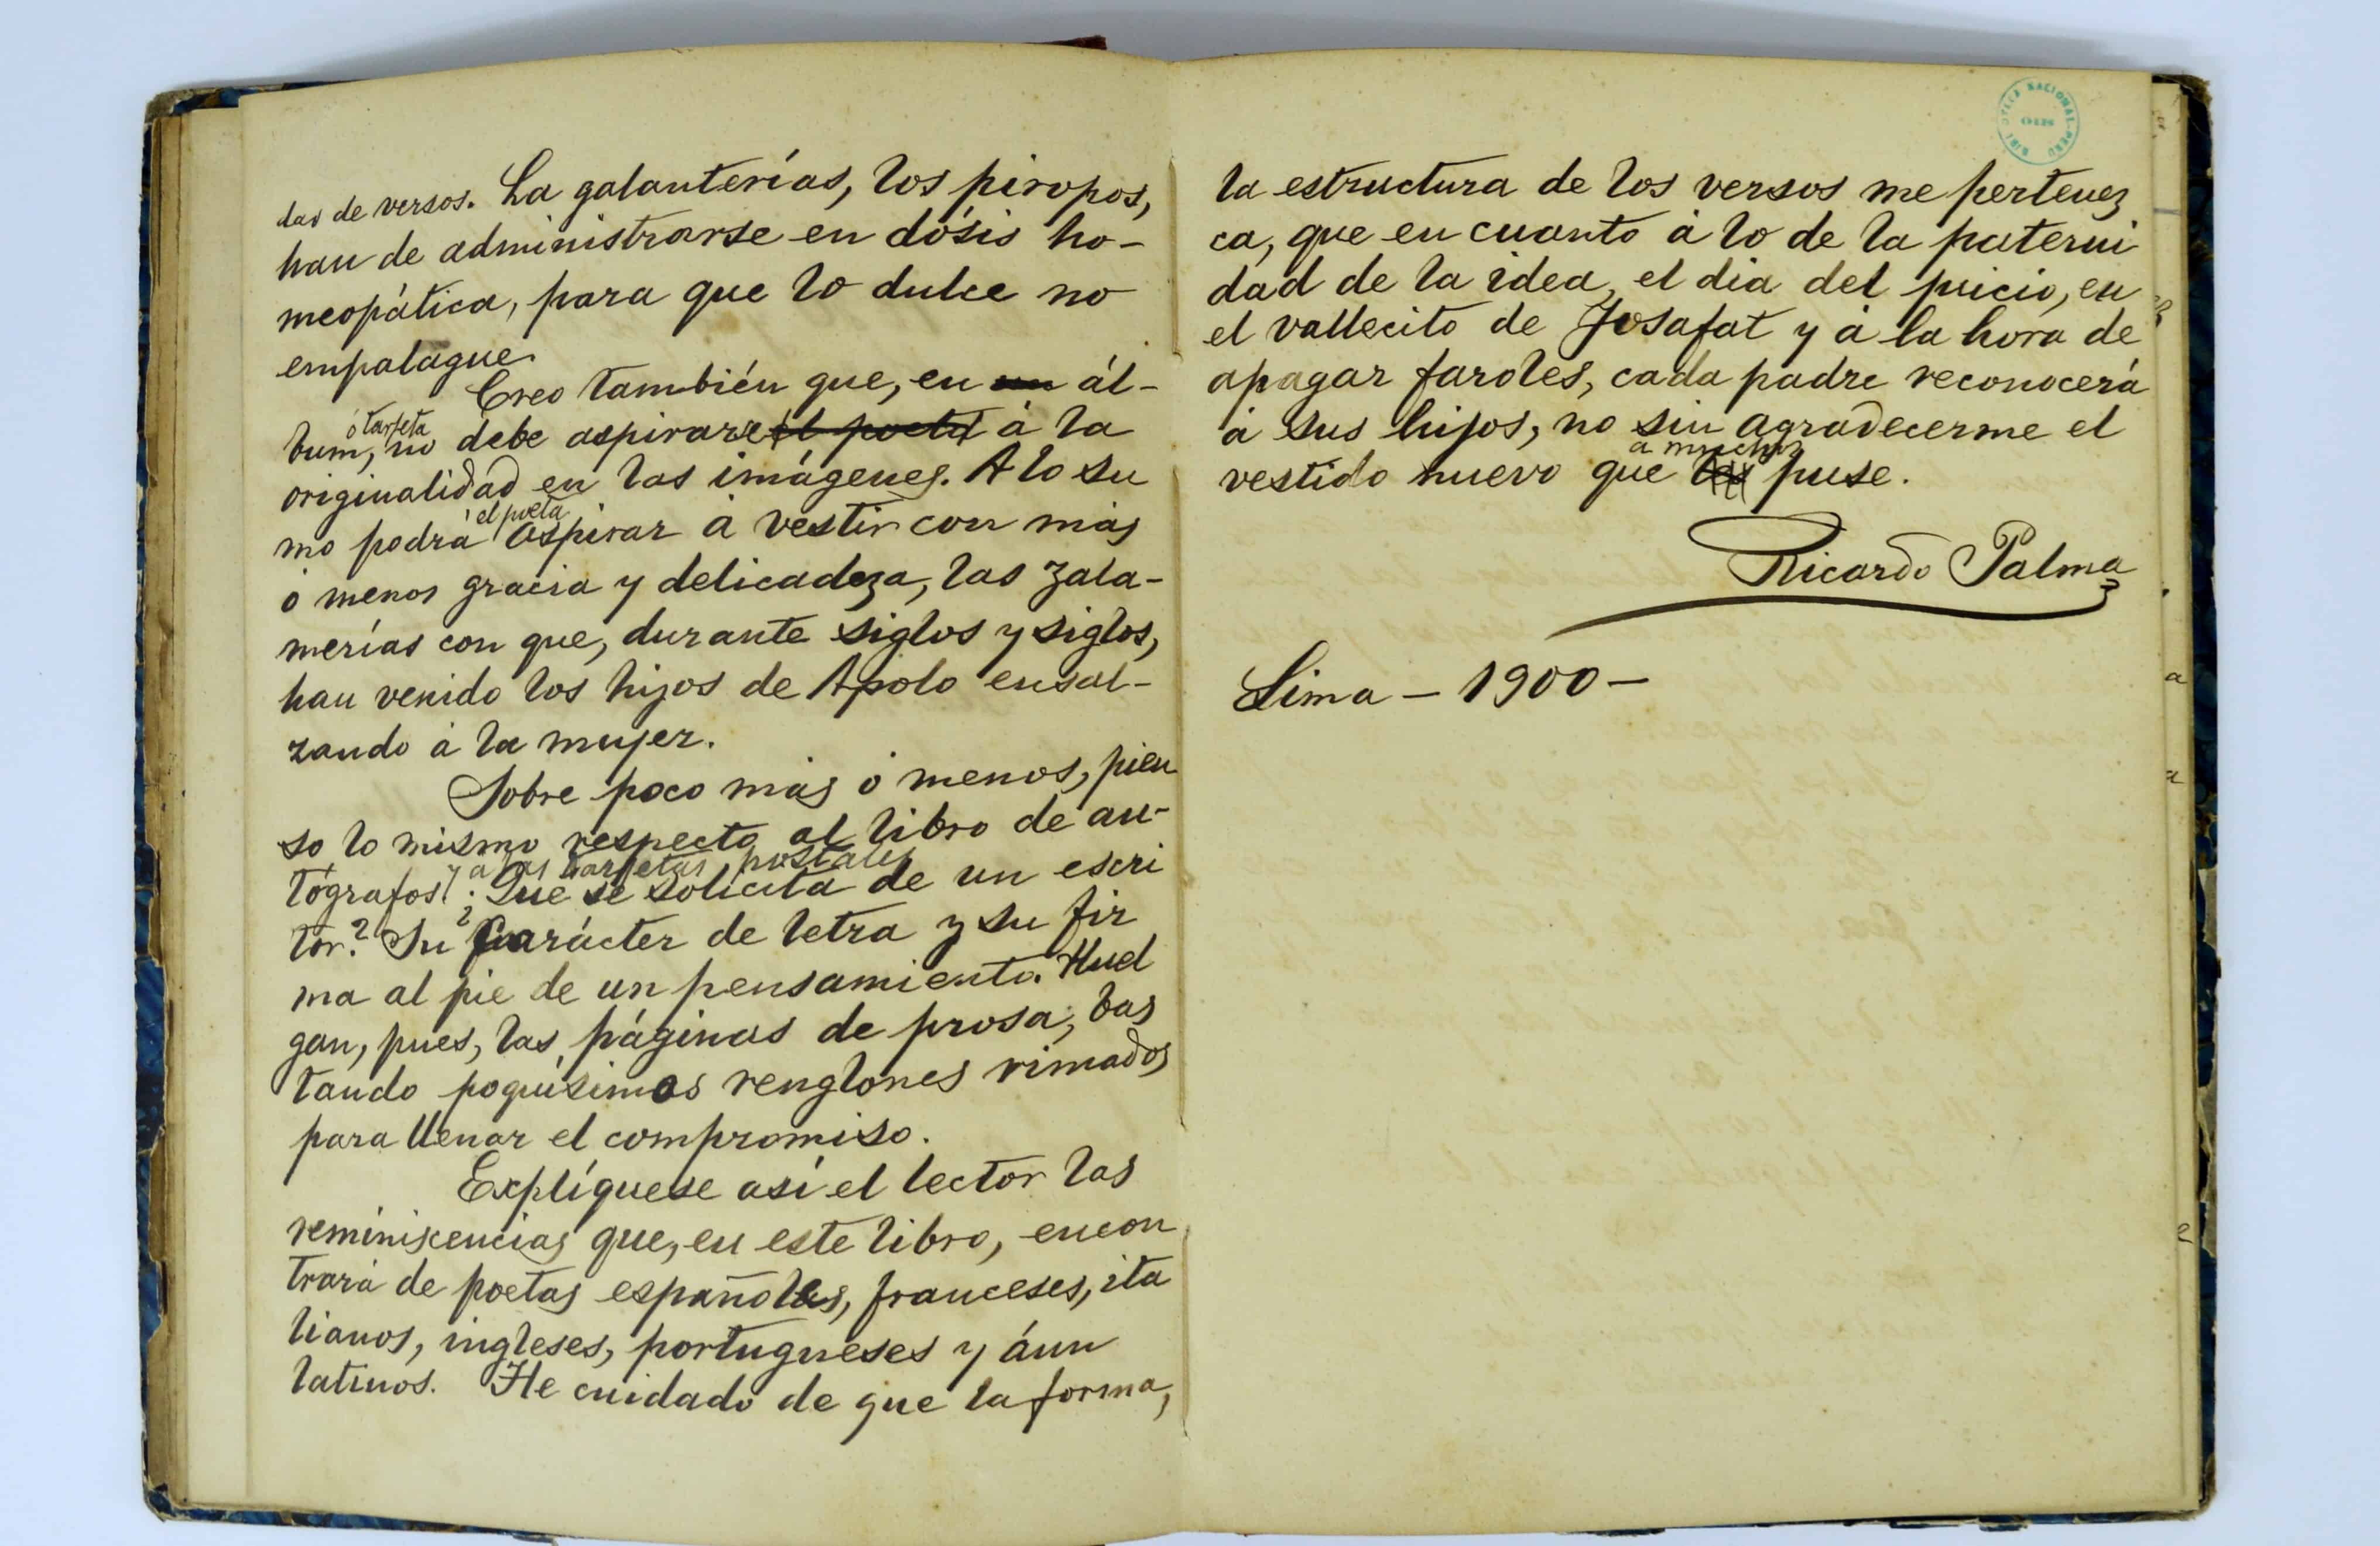 das de versos. La galanterías, los piropos,
han de administrarse en dósis ho-
meopática, para que lo dulce no
empalague.
Creo también que, en un ál-
ó tarjeta
bum, no debe aspirarse el poeta á la
originalidad en las imágenes. A lo su
el poeta
mo podrá aspirar á vestir con más
ó menos gracia y delicadeza, las zala-
merías con que, durante siglos y siglos,
han venido los hijos de Apolo ensal-
zando á la mujer.
Sobre poco más ó menos, pien
so lo mismo respecto al libro de au-
y a las tarjetas postales
tógrafos. ¿Que se solicita de un escri
tor? Su carácter de letra y su fir
ma al pie de un pensamiento. Huel
gan, pues, las páginas de prosa, bas
tando poquísimos renglones rimados
para llenar el compromiso.
Explíquese así el lector las
reminiscencias que, en este libro, encon
trará de poetas españoles, franceses, ita
lianos, ingleses, portugueses y áun
latinos. He cuidado de que la forma,
BIBLIOTECA NACIONAL-PERÚ
la estructura de los versos me pertenez
ca, que en cuanto á lo de la paterni
dad de la idea, el dia del juicio, en
el vallecito de Josafat y á la hora de
apagar faroles, cada padre reconocerá
á sus hijos, no sin agradecerme el
a muchos
vestido nuevo que les puse.
Ricardo Palma
Lima - 1900 -